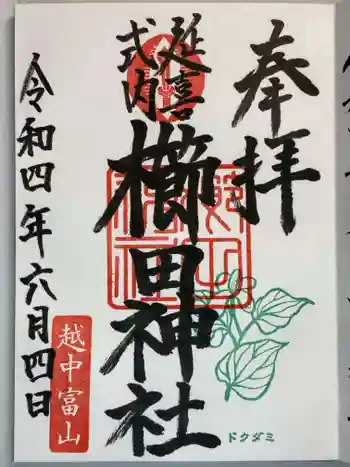 奉拝
延喜
式内
櫛田神社
令和四年六月四日
越中富山
ドクダミ